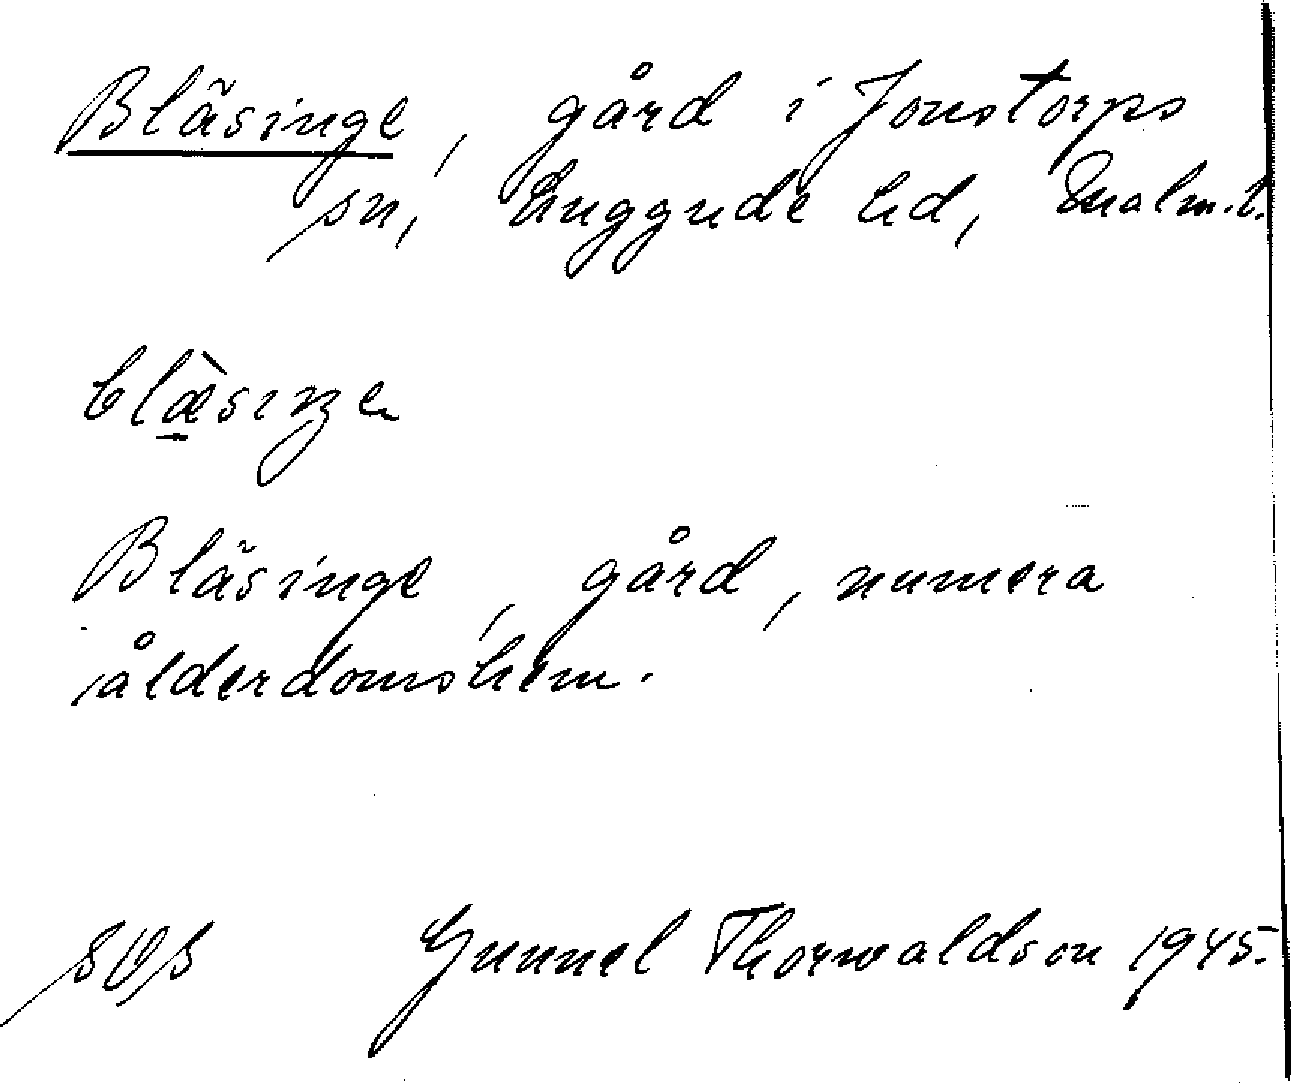 Bläsinge, gård i Jonstorps
sn, Luggude hd, Malm. l.
blæ̀siŋe
Bläsinge, gård, numera
ålderdomshem.
Gunnel Thorwaldson 1945.